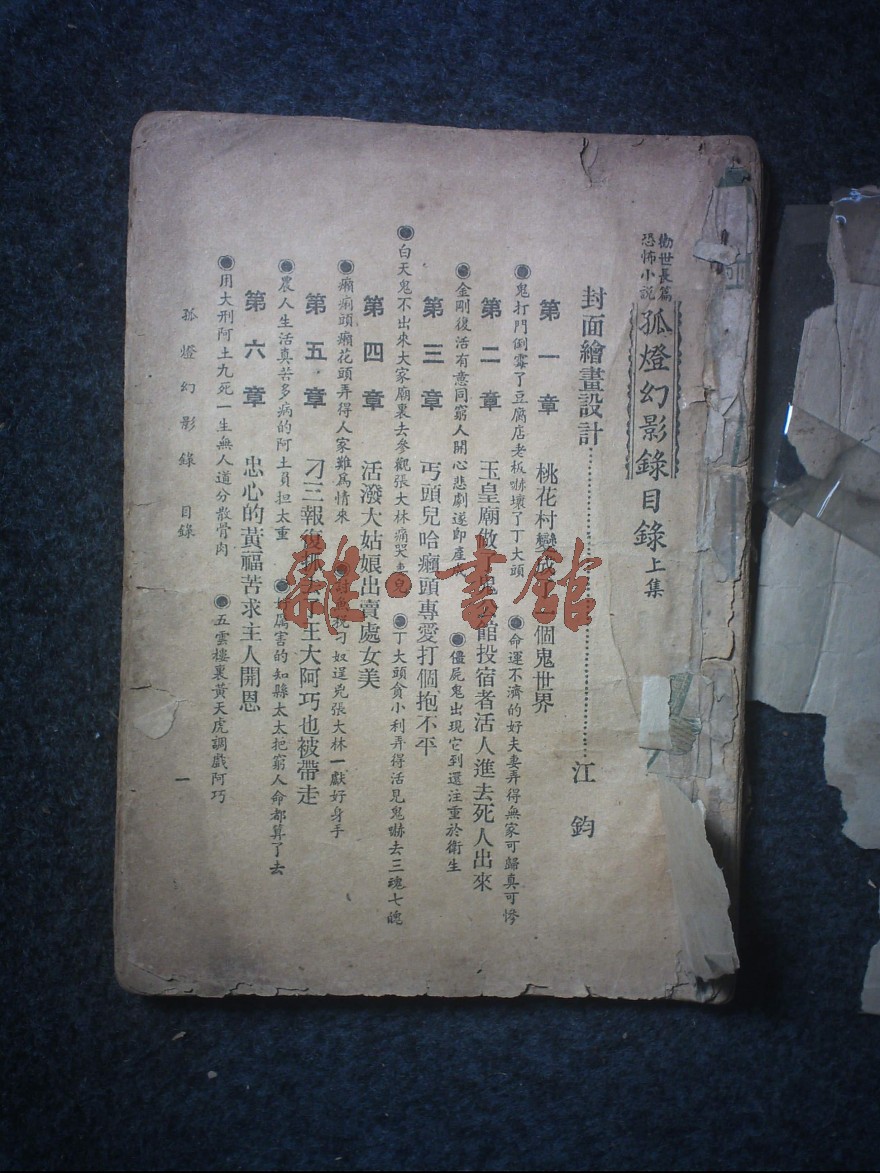 勸世長篇
恐怖小説
孤燈幻影錄目錄 上集
封面繪畫設計……江鈞
第一章 桃花村變成一個鬼世界
●鬼打門倒霉了豆腐店老板嚇壞了丁大頭 ●命運不濟的好夫妻弄得無家可歸真可慘
第二章 玉皇廟做了鬼公館投宿者活人進去死人出來
●金剛復活有意同窮人開心悲劇遂即產 ●僵屍鬼出現它到還注重於衛生
第三章 丐頭兒哈癩頭專愛打個抱不平
●白天鬼不出來大家廟裏去參觀張大林痛哭妻兒 ●丁大頭貪小利弄得活見鬼嚇去三魂七魄
第四章 活潑大姑娘出賣處女美
●癩痢頭癩花頭弄得人家難爲情來 刁奴逞兇張大林一獻好身手
第五章 刁三報復抓去了王大阿巧也被帶走
●農人生活真苦多病的阿土負担太重 ●厲害的知縣太太把窮人命都算了去
第六章 忠心的黃福苦求主人開恩
●用大刑阿土九死一生無人道分散骨肉 ●五雲樓裏黃天虎調戲阿巧
孤燈幻影錄 目錄 一
雜·書館